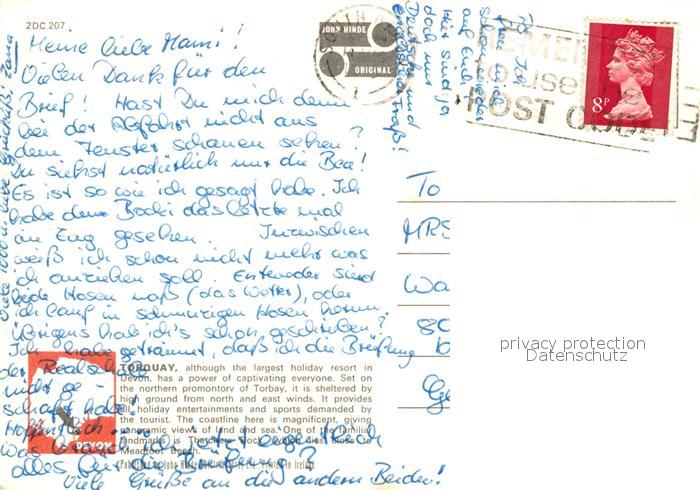 2DC 207
JOHN HINDE
ORIGINAL
REMEMBER
to use
POST CODE
8P
Meine liebe Mami!
Vielen Dank für den
Brief! Hast Du mich denn
bei der Abfahrt nicht aus
dem Fenster schauen sehen?
Du siehst natürlich nur die Bea!
Es ist so wie ich gesagt habe. Ich
habe denn Bocki das letzte mal
im Zug gesehen. Inzwischen
weiß ich schon nicht mehr was
ich anziehen soll. Entweder sind
beide Hosen naß (das Wetter), oder
ich lauf in schmutzigen Hosen herum.
Übrigens hab ich's schon geschrieben?
Ich habe geträumt, daß ich die Prüfung
der Realschule
nicht ge-
schafft habe!
Hoffentlich
was brauch ich jetzt eigentlich
alles für die Prüfung?
Viele Grüße an die andern Beiden!
Viele 1000 u. liebe Grüße
Ich
freu mich
schon wieder
auf Euch
Hier sind ja
doch nur
Deutsche und
To
MRS
Wa
80
Ge
TORQUAY, although the largest holiday resort in
Devon, has a power of captivating everyone. Set on
the northern promontory of Torbay, it is sheltered by
high ground from north and east winds. It provides
all holiday entertainments and sports demanded by
the tourist. The coastline here is magnificent giving
panoramic views of land and sea. One of the familiar
landmarks is Thatcher Rock, which lies close to
Meadfoot Beach.
DEVON
privacy protection
Datenschutz